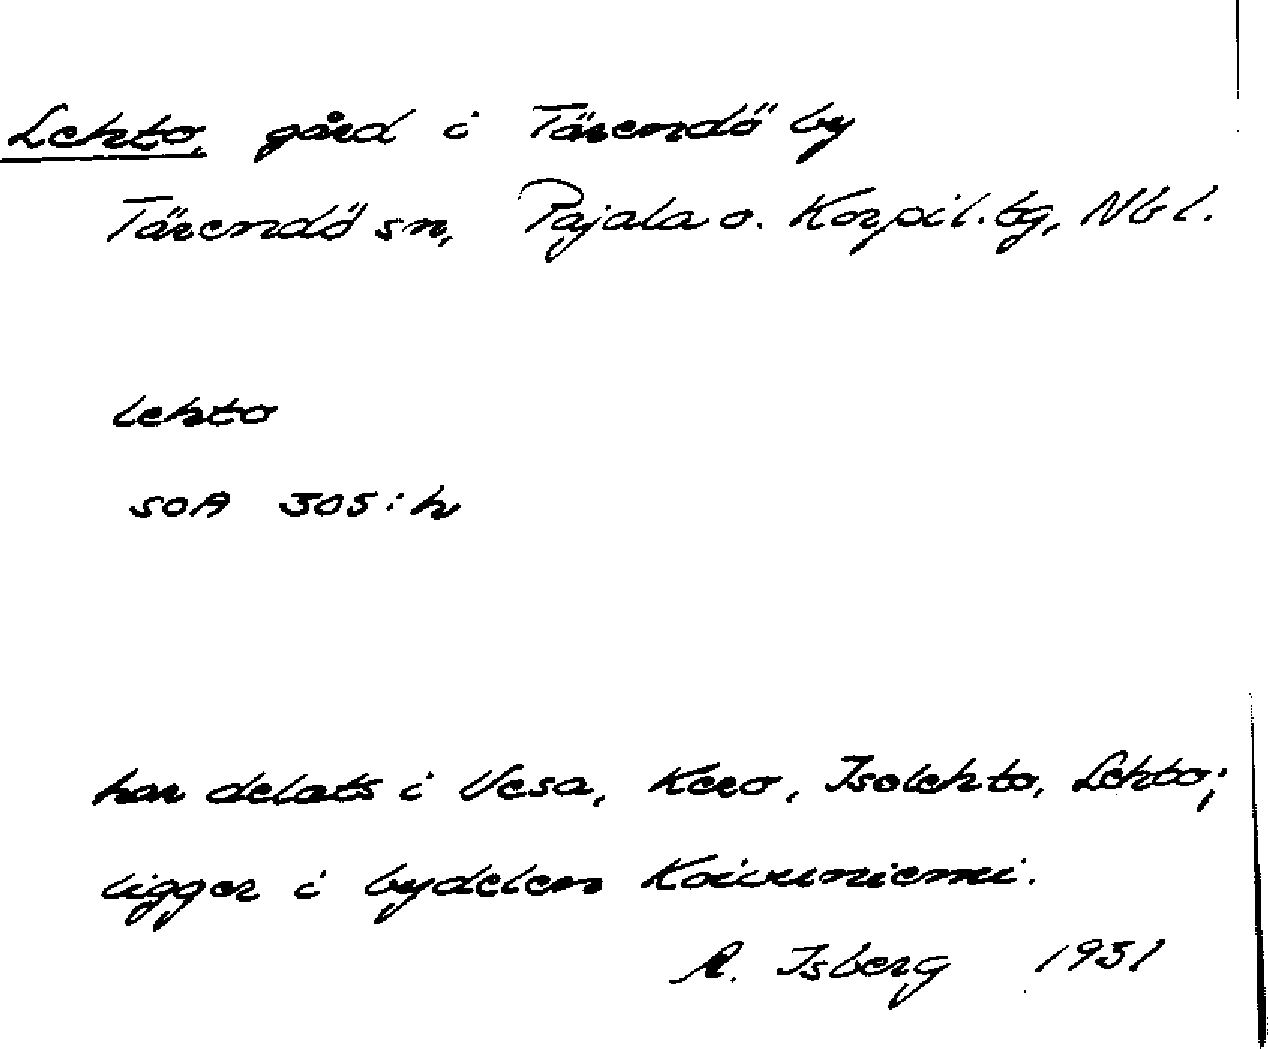 Lehto, gård i Tärendö by
Tärendö sn, Pajala o. Korpil. tg, Nb l.
lehto
SOA 305:h
har delats i Vesa, Kero, Isolehto, Lehto;
ligger i bydelen Koivuniemi.
R. Isberg 1931